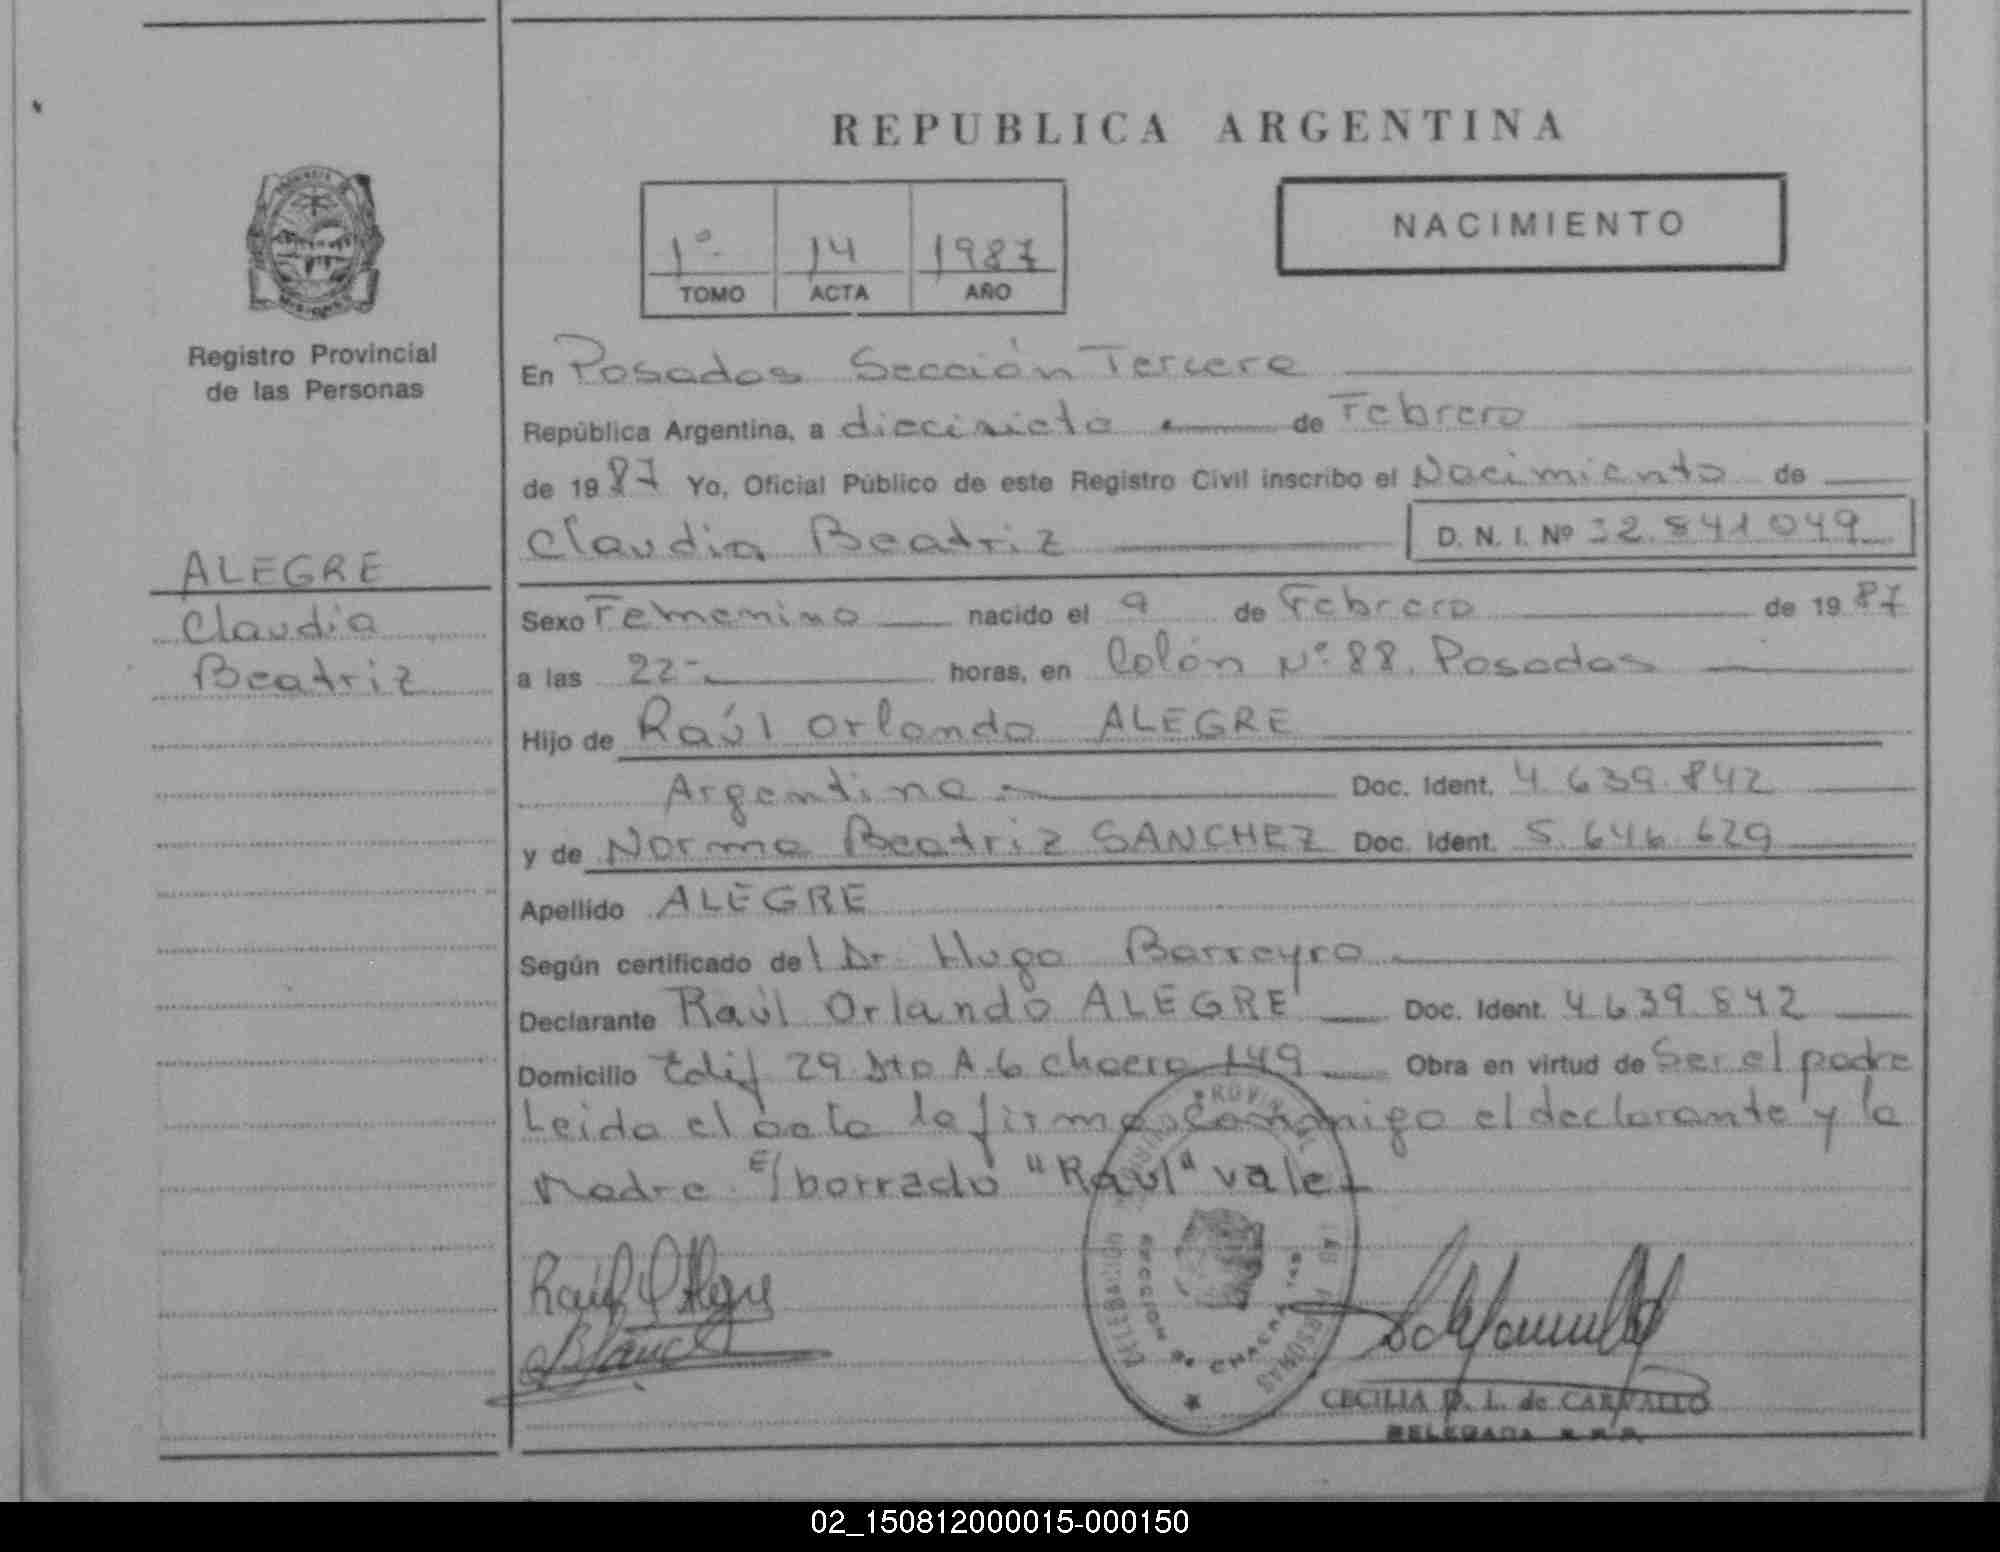 REPUBLICA ARGENTINA
NACIMIENTO
1º 14 1987
TOMO ACTA AÑO
Registro Provincial
de las Personas
ALEGRE
Claudia
Beatriz
En Posadas Sección Tercera
República Argentina, a diecisiete de Febrero
de 1987 Yo, Oficial Público de este Registro Civil inscribo el Nacimiento de
Claudia Beatriz D. N. I. Nº 32.841.049
Sexo Femenino nacido el 9 de Febrero de 1987
a las 22- horas, en Colón Nº 88. Posadas
Hijo de Raúl Orlando ALEGRE
Argentina Doc. Ident. 4.639.842
y de Norma Beatriz SANCHEZ Doc. Ident. 5.646.629
Apellido ALEGRE
Según certificado del Dr. Hugo Barreyro
Declarante Raúl Orlando ALEGRE Doc. Ident. 4.639.842
Domicilio Edif 29 Dto A-6 chacra 149 Obra en virtud de Ser el padre
Leida el acta la firma conmigo el declarante y la
Madre E/ borrado "Raúl" vale
PROVINCIAL DE LAS PERSONAS
DELEGACION
SECCION
CECILIA D. L. de CARVALLO
DELEGADA R.P.P.
02_150812000015-000150